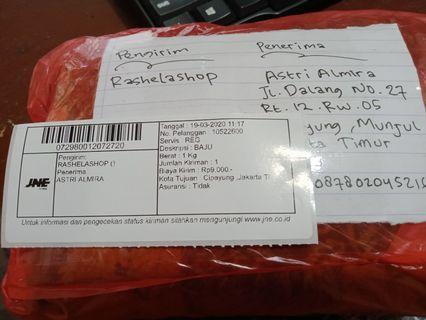 Pengirim
Rashelashop
Penerima
Astri Almira
Jl. Dalang No. 27
Rt. 12. Rw. 05
Munjul
Timur
072980012072720
JNE
Pengirim
RASHELASHOP ()
Penerima
ASTRI ALMIRA
Tanggal : 19-03-2020 11:17
No. Pelanggan : 10522600
Servis : REG
Deskripsi : BAJU
Berat : 1 Kg
Jumlah Kiriman : 1
Biaya Kirim : Rp9.000,-
Kota Tujuan : Cipayung, Jakarta Ti
Asuransi : Tidak
Untuk informasi dan pengecekan status kiriman silahkan mengunjungi www.jne.co.id